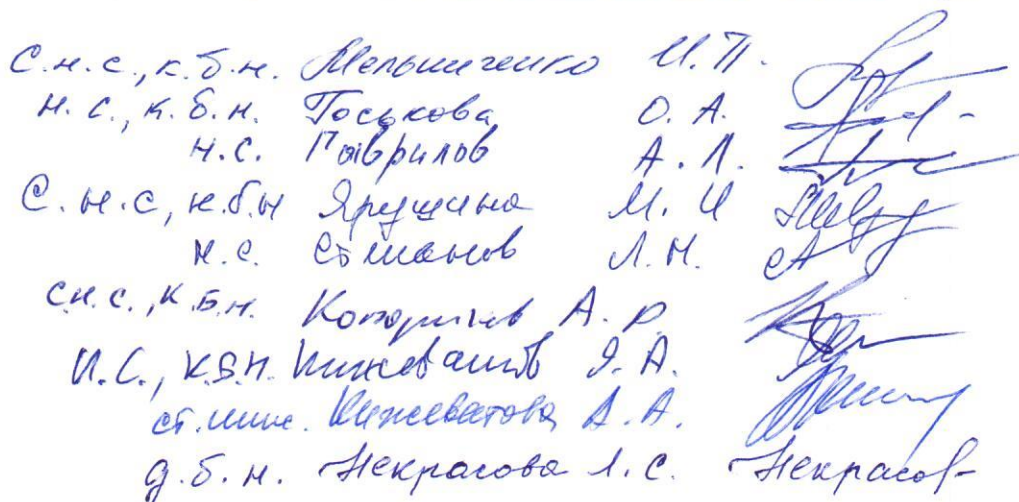 с.н.с., к.б.н. Мельниченко И.П.
н.с., к.б.н. Госькова О.А.
н.с. Гаврилов А.Л.
с.н.с, к.б.н Ярушина М.И
н.с. Степанов Л.Н.
с.н.с., к.б.н. Копориков А.Р.
н.с., к.б.н. Кижеватов Я.А.
ст. инж. Кижеватова А.А.
д.б.н. Некрасова Л.С. Некрасов